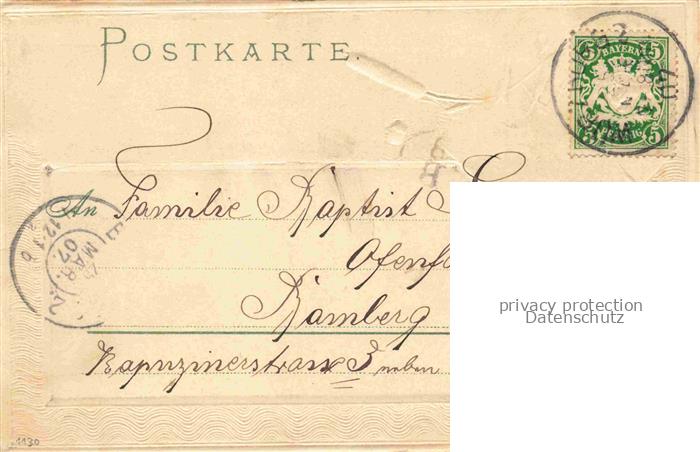 POSTKARTE.
5 BAYERN 5
5 PFENNIG 5
An Familie Baptist
Ofenf
Bamberg
Kapuzinerstrasse 3 neben
MAR
07
privacy protection
Datenschutz
1130